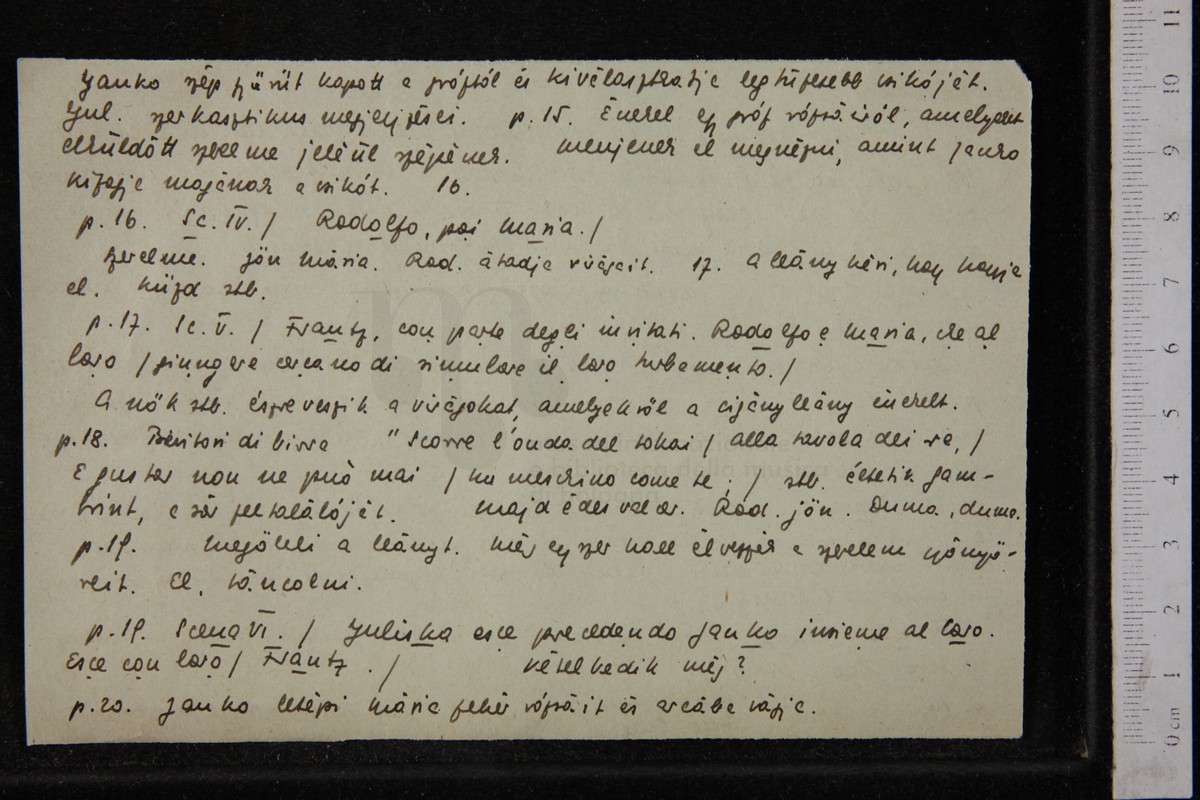 Janko szép gyűrűt kapott a gróftól és kiválaszthatja legtüzesebb csikóját.
Jul. szarkasztikus megjegyzései. p. 15. Énekel egy gróf rózsáiról, amelyeket
elküldött szerelme jeléül szépének. menjenek el megnézni, amint Janko
kifogja magának a csikót. 16.
p. 16. Sc. IV. / Rodolfo, poi Maria. /
Szerelme. Jön Mária. Rod. átadja virágait. 17. A leány kéri, hogy hagyja
el. Küzd stb.
p. 17. Sc. V. / Frantz, con parte degli invitati. Rodolfo e Maria, che al
loro / giungere cercano di simulare il loro turbamento. /
A nők stb. észreveszik a virágokat, amelyekről a cigányleány énekelt.
p. 18. Bevitori di birra "Scorre l'onda del tokai / alla tavola dei re, /
E gustar non ne può mai / un meschino come te; / stb. éltetik Gam-
brint, a sör feltalálóját. majd édes valcer. Rod. jön. Duma, duma.
p. 19. Megöleli a leányt. Még egyszer hadd élvezzék a szerelem gyönyö-
reit. El, táncolni.
p. 19. Scena VI. / Juliska esce precedendo Janko insieme al loro.
Esce con loro / Frantz. / kételkedik még?
p. 20. Janko letépi Mária fehér rózsáit és arcába vágja.